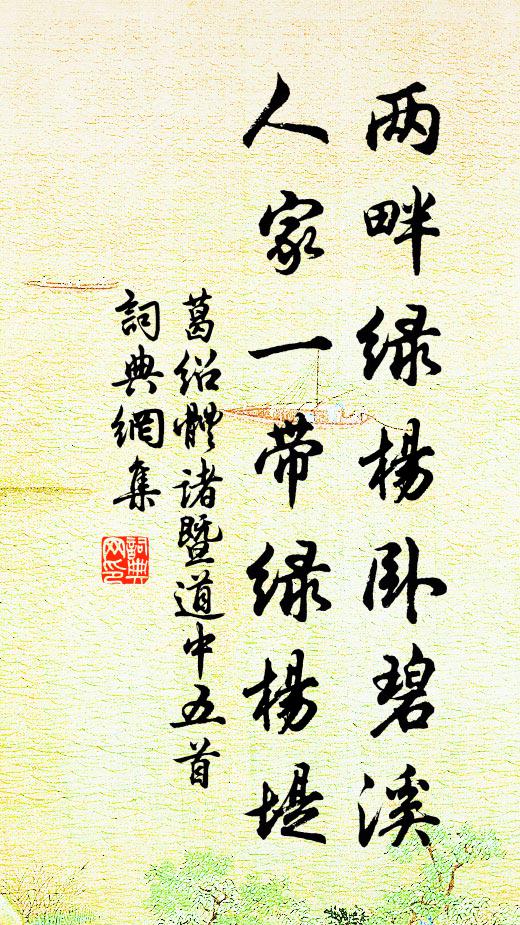 两畔绿杨卧碧溪
人家一带绿杨堤
葛绍體诸暨道中五首
詞典網集
詞典
网印